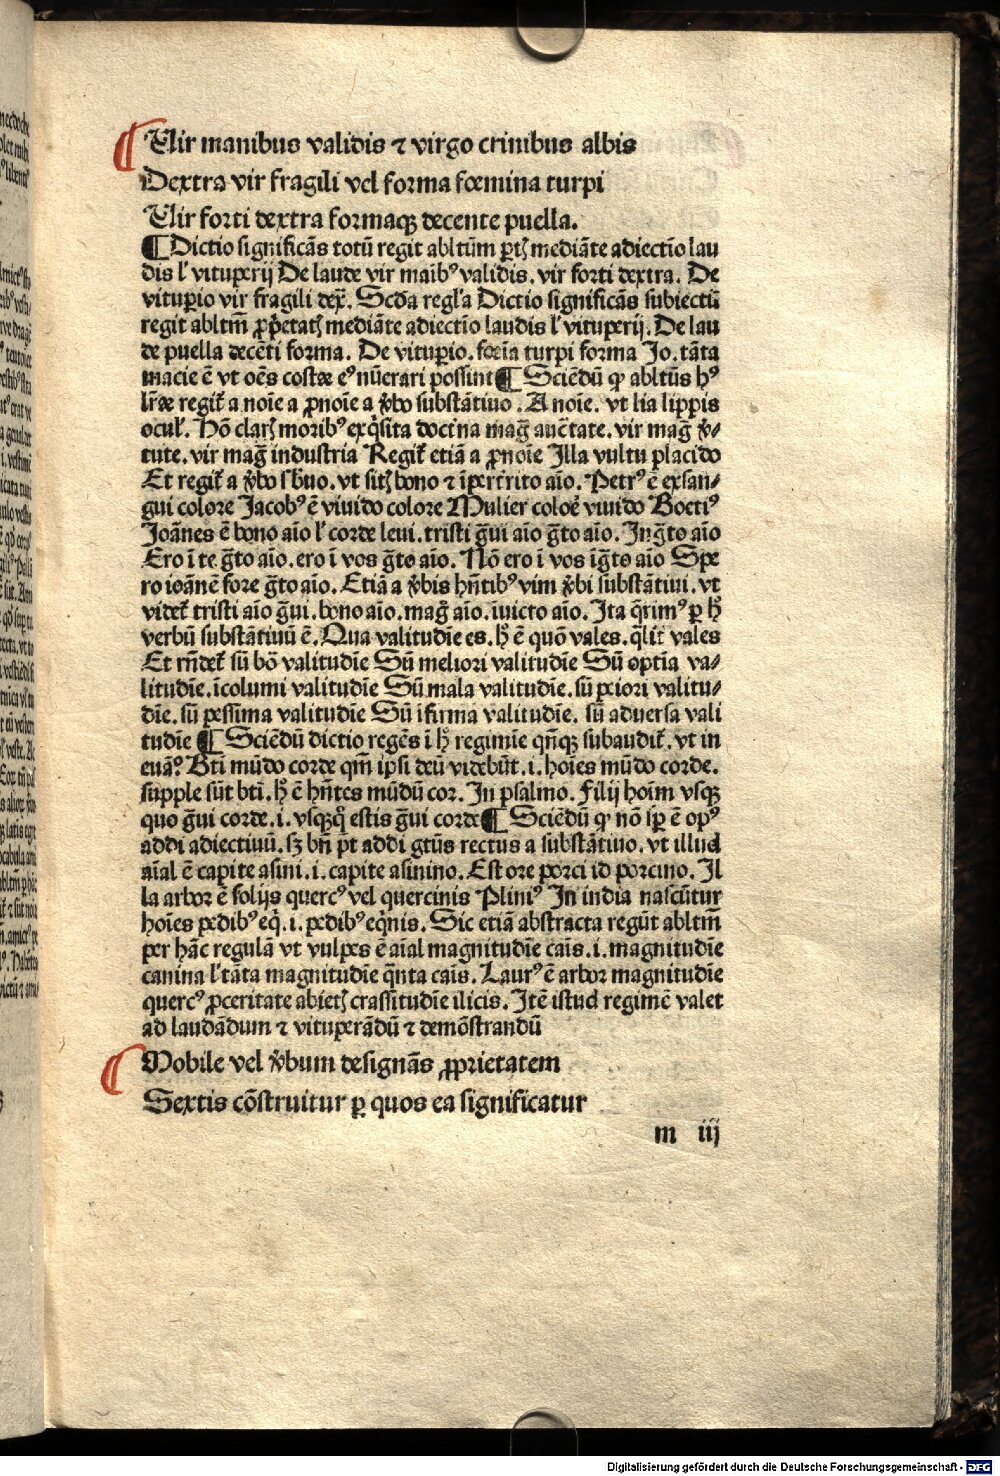 Uir manibus validis ⁊ virgo crinibus albis
Dextra vir fragili vel forma fœmina turpi
Uir forti dextra formaqꝫ decente puella.
¶ Dictio significãs totũ regit abltũm ꝑtꝭ mediãte adiectĩo lau
dis l' vituperij De laude vir maĩbꝰ validis. vir forti dextra. De
vituꝑio vir fragili dex̃. Scḋa regl'a Dictio significãs subiectũ
regit abltm̃ ꝓp̃etatꝭ mediãte adiectĩo laudis l' vituperij. De lau
de puella decẽti forma. De vituꝑio. foẽĩa turpi forma Jo. tãta
macie ẽ vt oẽs costæ eꝰ nũerari possint ¶ Sciẽdũ ꝙ abltũs hꝰ
lr̃æ regiť a noĩe a ꝓnoĩe a v̾bo substãtiuo. A noĩe. vt lia lippis
ocul'. Hõ clarꝭ moribꝰ exq̃sita doctĩna mag̃ auc̃tate. vir mag̃ v̾⸗
tute. vir mag̃ industria Regiť etiã a ꝓnoĩe Jlla vultu placido
Et regiť a v̾bo sb̃uo. vt sitꝭ bono ⁊ ĩꝑterrito aĩo. Petrꝰ ẽ exsan⸗
gui colore Jacobꝰ ẽ viuido colore Mulier coloẽ viuido Boetiꝰ
Joãnes ẽ bono aĩo l' corde leui. tristi g̃ui aĩo g̃to aĩo. Jng̃to aĩo
Ero ĩ te g̃to aĩo. ero ĩ vos g̃to aĩo. Nõ ero ĩ vos ĩg̃to aĩo Spe
ro ioãnẽ fore g̃to aĩo. Etiã a v̾bis hñtibꝰ vim v̾bi substãtiui. vt
videť tristi aĩo g̃ui. bono aĩo. mag̃ aĩo. iuicto aĩo. Jta q̃rimꝰ ꝑ hꝰ
verbũ substãtiuũ ẽ. Qua valitudĩe es. hꝰ ẽ quõ vales. q̃liť vales
Et rñdeť sũ bõ valitudĩe Sũ meliori valitudĩe Sũ optĩa va⸗
litudĩe. ĩcolumi valitudĩe Sũ mala valitudĩe. sũ peiori valitu⸗
dĩe. sũ pessima valitudĩe Sũ ĩfirma valitudĩe. sũ aduersa vali
tudĩe ¶ Sciẽdũ dictio regẽs ĩ hꝰ regimĩe qñqꝫ subaudiť. vt in
euã.° Bti mũdo corde qm̃ ipsi deũ videbũt. i. hoĩes mũdo corde.
supple sũt bti. hꝰ ẽ hñtes mũdũ cor. Jn psalmo. Filij hoĩm vsqꝫ
quo g̃ui corde. i. vsqꝫq̊ estis g̃ui corde ¶ Sciẽdũ ꝙ nõ sꝑ ẽ opꝰ
addi adiectiuũ. sꝫ bñ p̃t addi gtũs rectus a substãtiuo. vt illud
aĩal ẽ capite asini. i. capite asinino. Est ore porci id porcino. Jl
la arbor ẽ folijs quercꝰ vel quercinis Pliniꝰ Jn india nascũtur
hoĩes pedibꝰ eq̇. i. pedibꝰ eq̇nis. Sic etiã abstracta regũt abltm̃
per hãc regulã vt vulpes ẽ aĩal magnitudĩe caĩs. i. magnitudĩe
canina l' tãta magnitudĩe q̃nta caĩs. Laurꝰ ẽ arbor magnitudĩe
quercꝰ ꝓceritate abietꝭ crassitudĩe ilicis. Jtẽ istud regimẽ valet
ad laudãdum ⁊ vituperãdũ ⁊ demõstrandũ
Mobile vel v̾bum designãs ꝓprietatem
Sextis cõstruitur ꝑ quos ea significatur
m iij
Digitalisierung gefördert durch die Deutsche Forschungsgemeinschaft - DFG